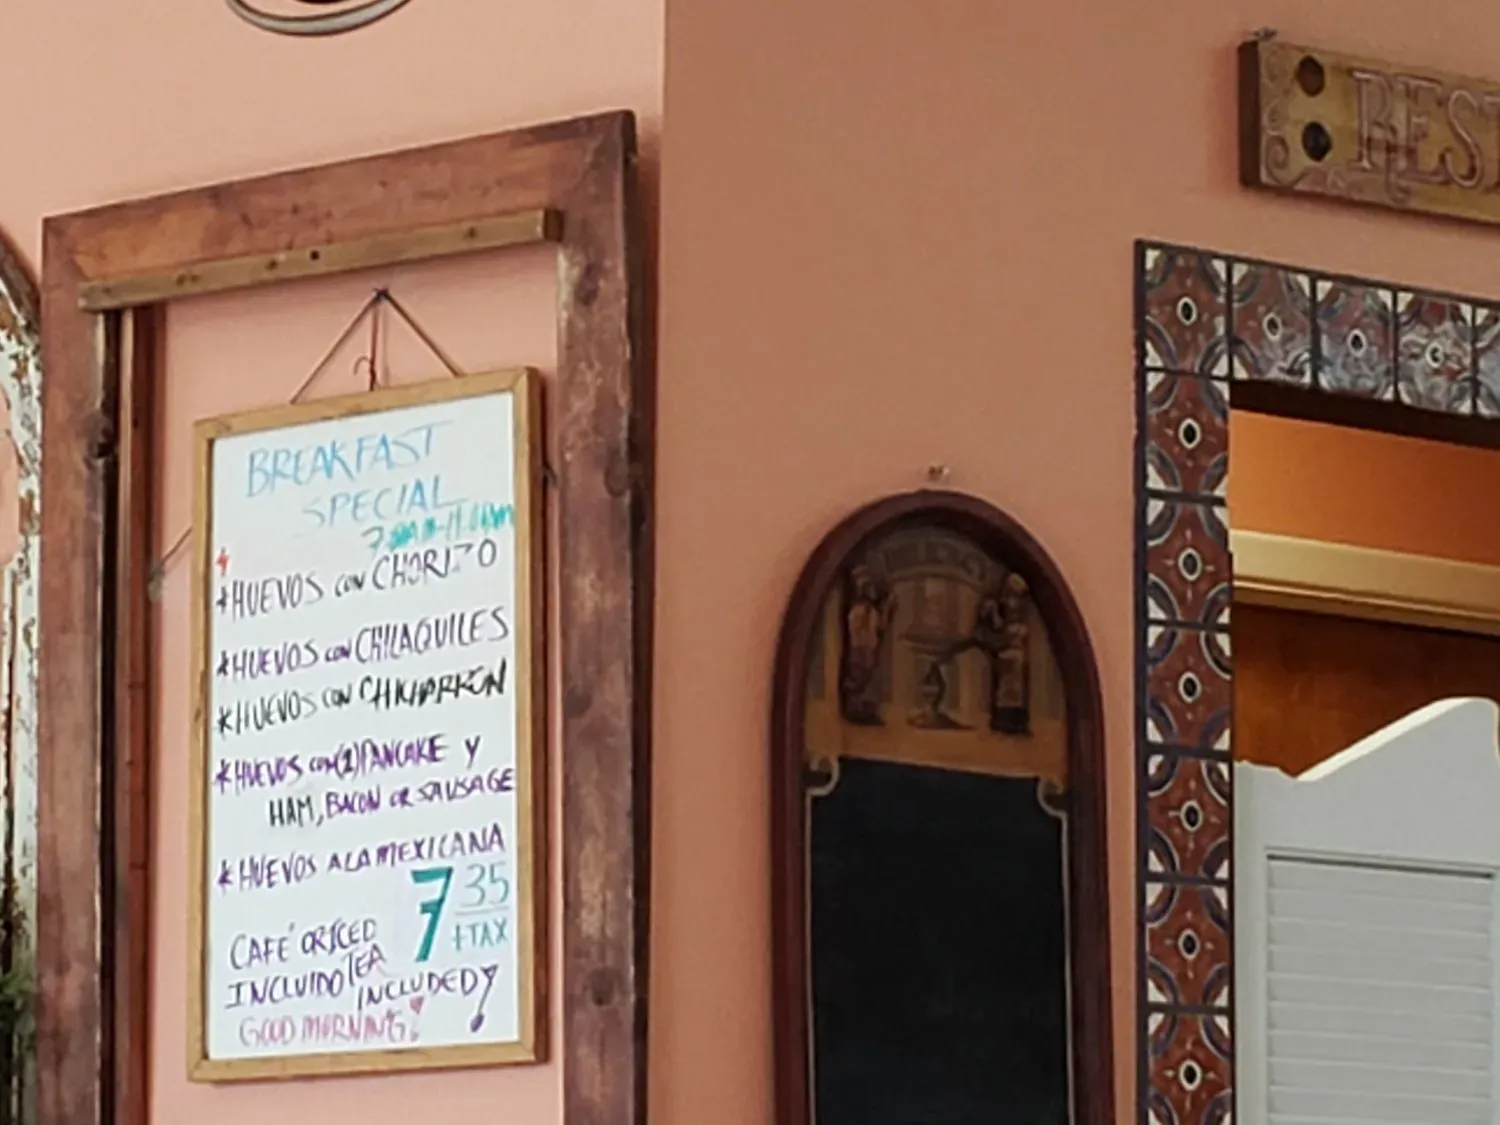 BREAKFAST
SPECIAL
*HUEVOS CON CHORIZO
*HUEVOS CON CHILAQUILES
*HUEVOS CON CHICHARRÓN
*HUEVOS CON (2) PANCAKE Y
HAM, BACON OR SAUSAGE
*HUEVOS A LA MEXICANA
7 35
+TAX
CAFÉ OR ICED
TEA
INCLUIDO
INCLUDED
GOOD MORNING!
REST